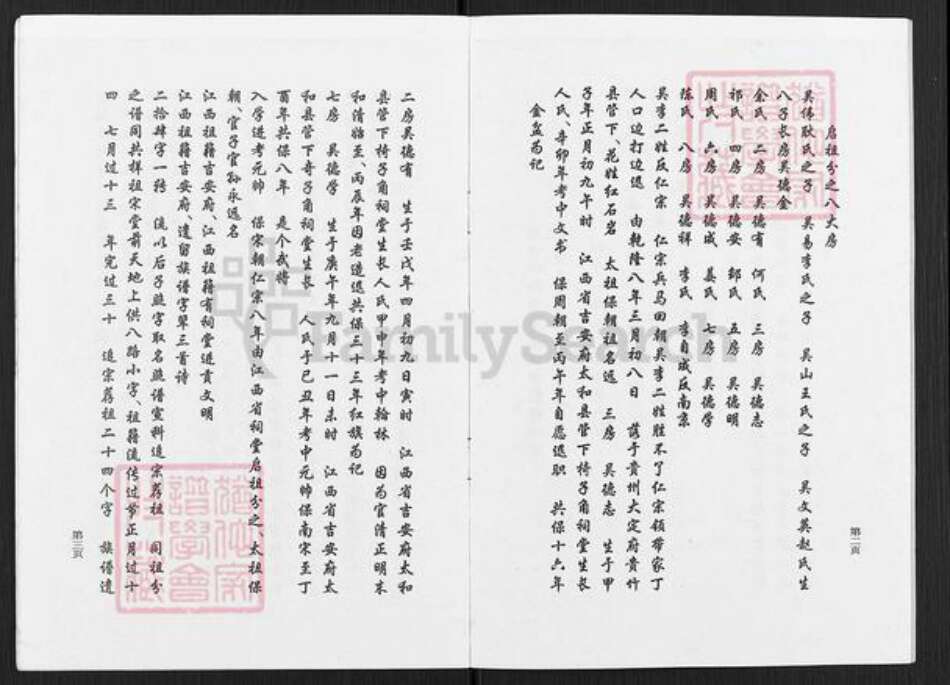 启祖分之八大房
吴伟耿氏之子 吴易李氏之子 吴山王氏之子 吴文英赵氏生
八子长房吴德金
余氏 二房 吴德有 何氏 三房 吴德志
祁氏 四房 吴德安 邹氏 五房 吴德明
周氏 六房 吴德成 姜氏 七房 吴德学
陈氏 八房 吴德祥 李氏 李自成反南京
吴李二姓反仁宗 仁宗兵马回朝吴李二姓胜不了仁宗领带家丁
人口边打边退 由乾隆八年三月初八日 落于贵州大定府贵竹
县管下、花姓红石岩 太祖保朝祖名远 三房 吴德志 生于甲
子年正月初九午时 江西省吉安府太和县管下椅子角祠堂生长
人氏、辛卯年考中文书 保周朝至丙午年自愿退职 共保十六年
金盆为记
第二页
二房吴德有 生于壬戌年四月初九日寅时 江西省吉安府太和
县管下椅子角祠堂生长人氏甲申年考中翰林 因为官清正明末
和清始至、丙辰年因老造退共保三十三年红旗为记
七房 吴德学 生于庚午年九月十一日未时 江西省吉安府太
和县管下奇子角祠堂生长 人氏于己丑年考中元帅保南宋至丁
酉年共保八年 是个武将
入学进考元帅 保宋朝仁宗八年由江西省祠堂启祖分之、太祖保
朝、官子官孙永远名
江西祖籍吉安府、江西祖籍有祠堂进贡文明
江西祖籍吉安府、遗留族谱字辈三首诗
二拾肆字一转 流以后子照字取名照谱宣科追宗荐祖 同祖分
之谱同共拜祖宗堂前天地上供八路小字、祖籍流传过节正月过十
四 七月过十三 年完过三十 追宗荐祖二十四个字 族谱遗
第三页
FamilySearch